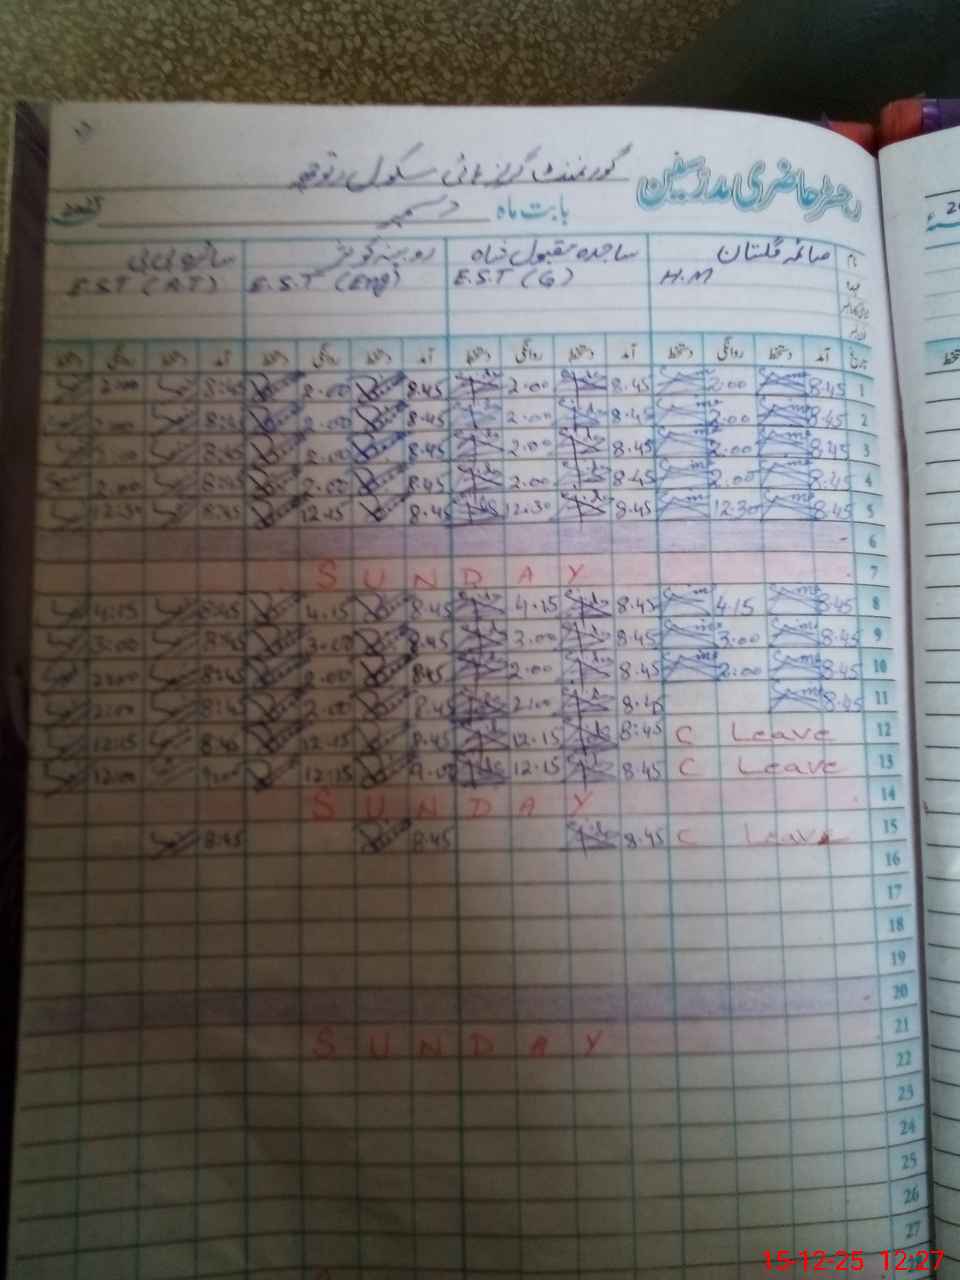 رجسٹر حاضری مدرسین گورنمنٹ گرلز ہائی سکول
بابت ماہ دسمبر
نام صائمہ گلستان ساجدہ مقبول شاہ روبینہ کوثر
عہدہ H.M E.S.T (G) E.S.T (Eng) E.S.T (A.T)
تاریخ آمد دستخط روانگی دستخط آمد دستخط روانگی دستخط آمد دستخط روانگی دستخط آمد دستخط روانگی دستخط
1 8.45 2.00 8.45 2.00 8.45 2.00 8:45 2:00
2 8.45 2.00 8.45 2.00 8.45 2.00 8:45
3 8.45 2.00 8.45 2.00 8.45 2.00 8:45
4 8.45 2.00 8.45 2.00 8.45 2.00 8:45 2:00
5 8.45 12.30 8.45 12.30 8.45 12.15 8:45 12:30
6
7 SUNDAY
8 8.45 4.15 8.45 4.15 8.45 4.15 8:45 4:15
9 8.45 3.00 8.45 3.00 8.45 3.00 8:45 3:00
10 8.45 2.00 8.45 2.00 8.45 2.00 8:45 2:00
11 8.45 8.45 2.00 8.45 2.00 8:45 2:00
12 C Leave 8:45 12.15 8.45 12.15 8.45 12:15
13 C Leave 8.45 12.15 9.00 12:15 9:00 12:00
14 SUNDAY
15 C Leave 8.45 8.45 8:45
16
17
18
19
20
21 SUNDAY
22
23
24
25
26
27
15-12-25 12:27